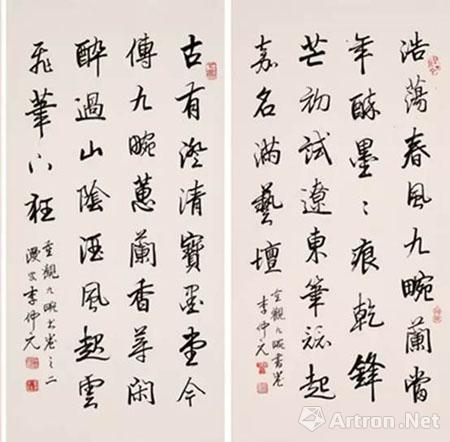 浩蕩春風九畹蘭當
年墨〻痕乾鋒
芒初試遼東筆起
嘉名滿藝壇
重觀九畹書卷
李仲元
古有澄清寶墨堂今
傳九畹蕙蘭香等閑
醉過山陰酒風起雲
飛筆下狂
重觀九畹書卷之二
李仲元
Artron.Net